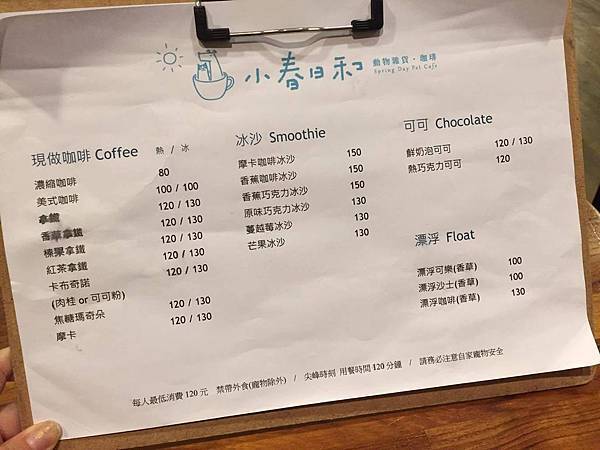 小春日和 動物雜貨・咖啡
Spring Day Pet Cafe
現做咖啡 Coffee 熱 / 冰
濃縮咖啡 80
美式咖啡 100 / 100
拿鐵 120 / 130
香草拿鐵 120 / 130
榛果拿鐵 120 / 130
紅茶拿鐵 120 / 130
卡布奇諾 120 / 130
(肉桂 or 可可粉)
焦糖瑪奇朵 120 / 130
摩卡 120 / 130
冰沙 Smoothie
摩卡咖啡冰沙 150
香蕉咖啡冰沙 150
香蕉巧克力冰沙 150
原味巧克力冰沙 130
蔓越莓冰沙 130
芒果冰沙 130
可可 Chocolate
鮮奶泡可可 120 / 130
熱巧克力可可 120
漂浮 Float
漂浮可樂(香草) 100
漂浮沙士(香草) 100
漂浮咖啡(香草) 130
每人最低消費 120 元 禁帶外食(寵物除外) / 尖峰時刻 用餐時間 120 分鐘 / 請務必注意自家寵物安全